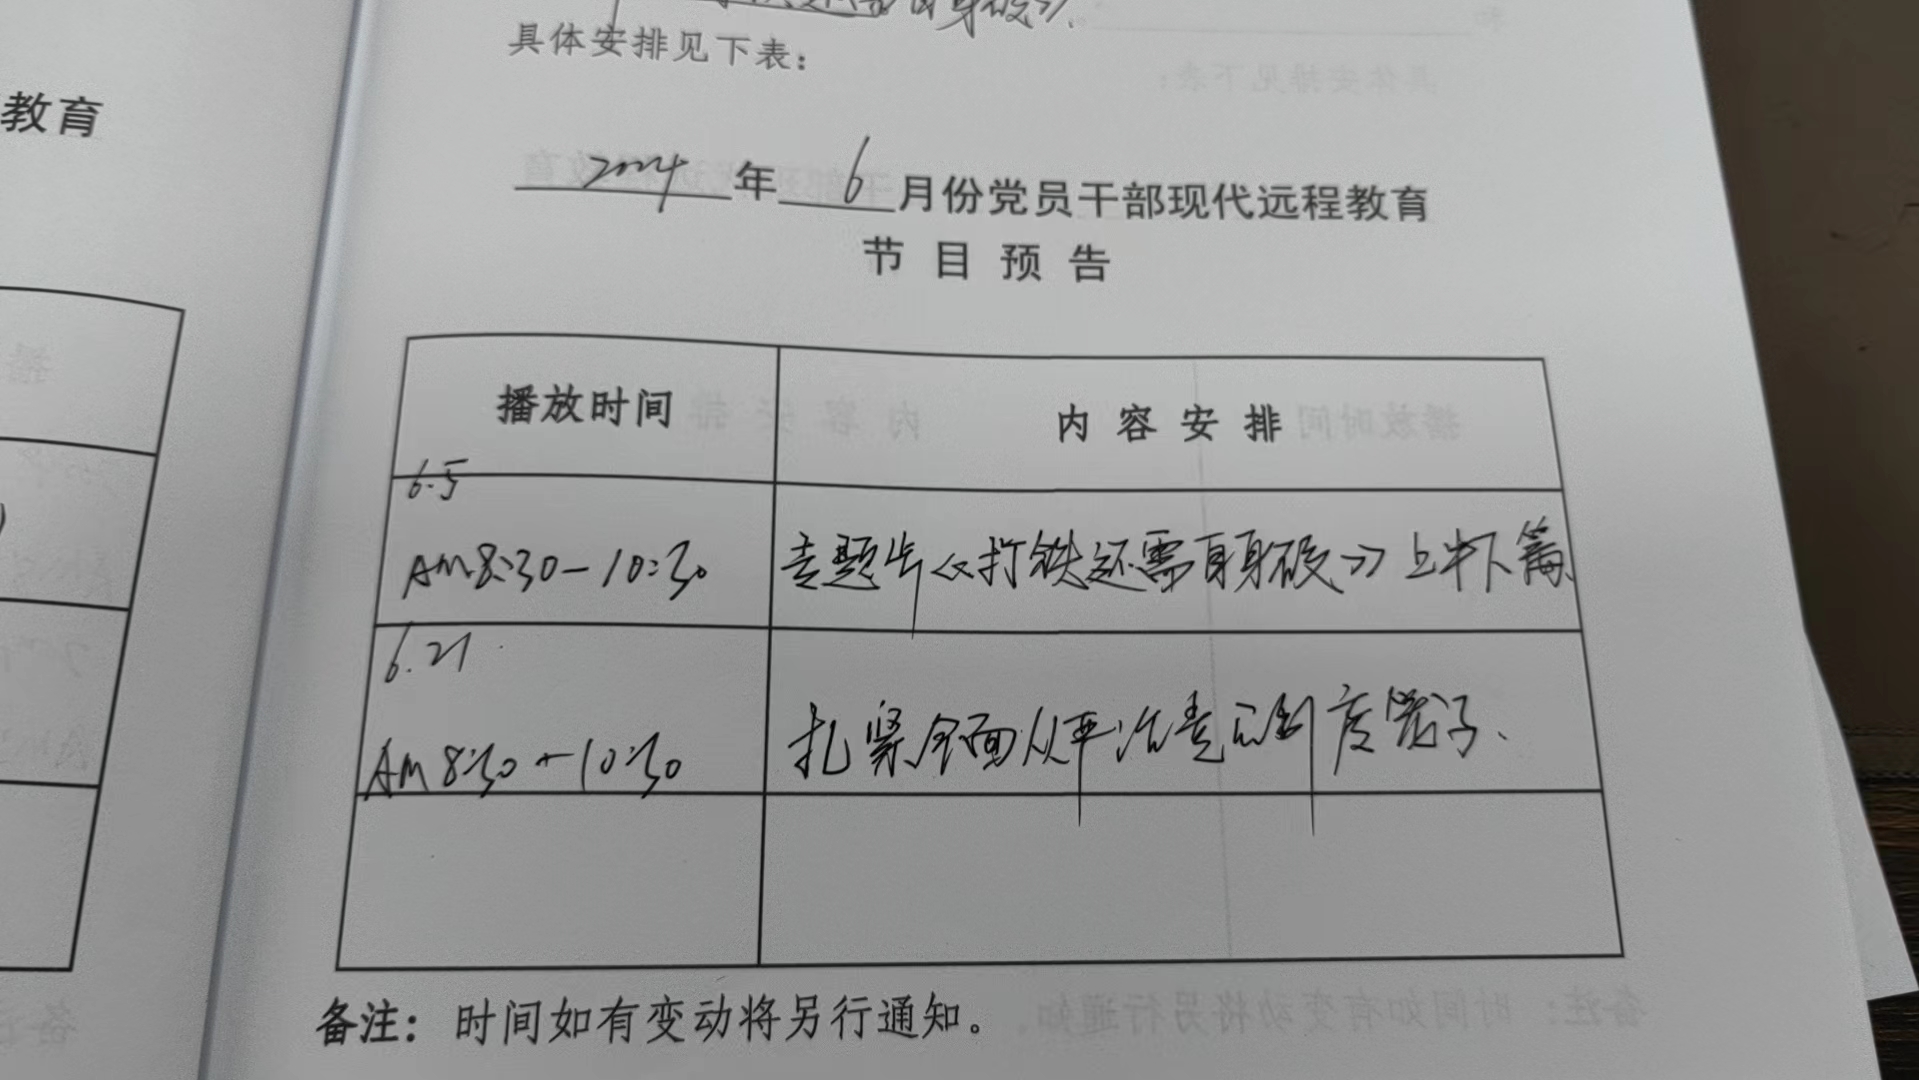 还需自身硬》.
具体安排见下表：
教育
2024年6月份党员干部现代远程教育
节目预告
播放时间 内容安排
6.5
AM8:30-10:30 专题片《打铁还需自身硬》上中下篇
6.21
AM8:30-10:30 扎紧全面从严治党制度笼子、
备注：时间如有变动将另行通知。